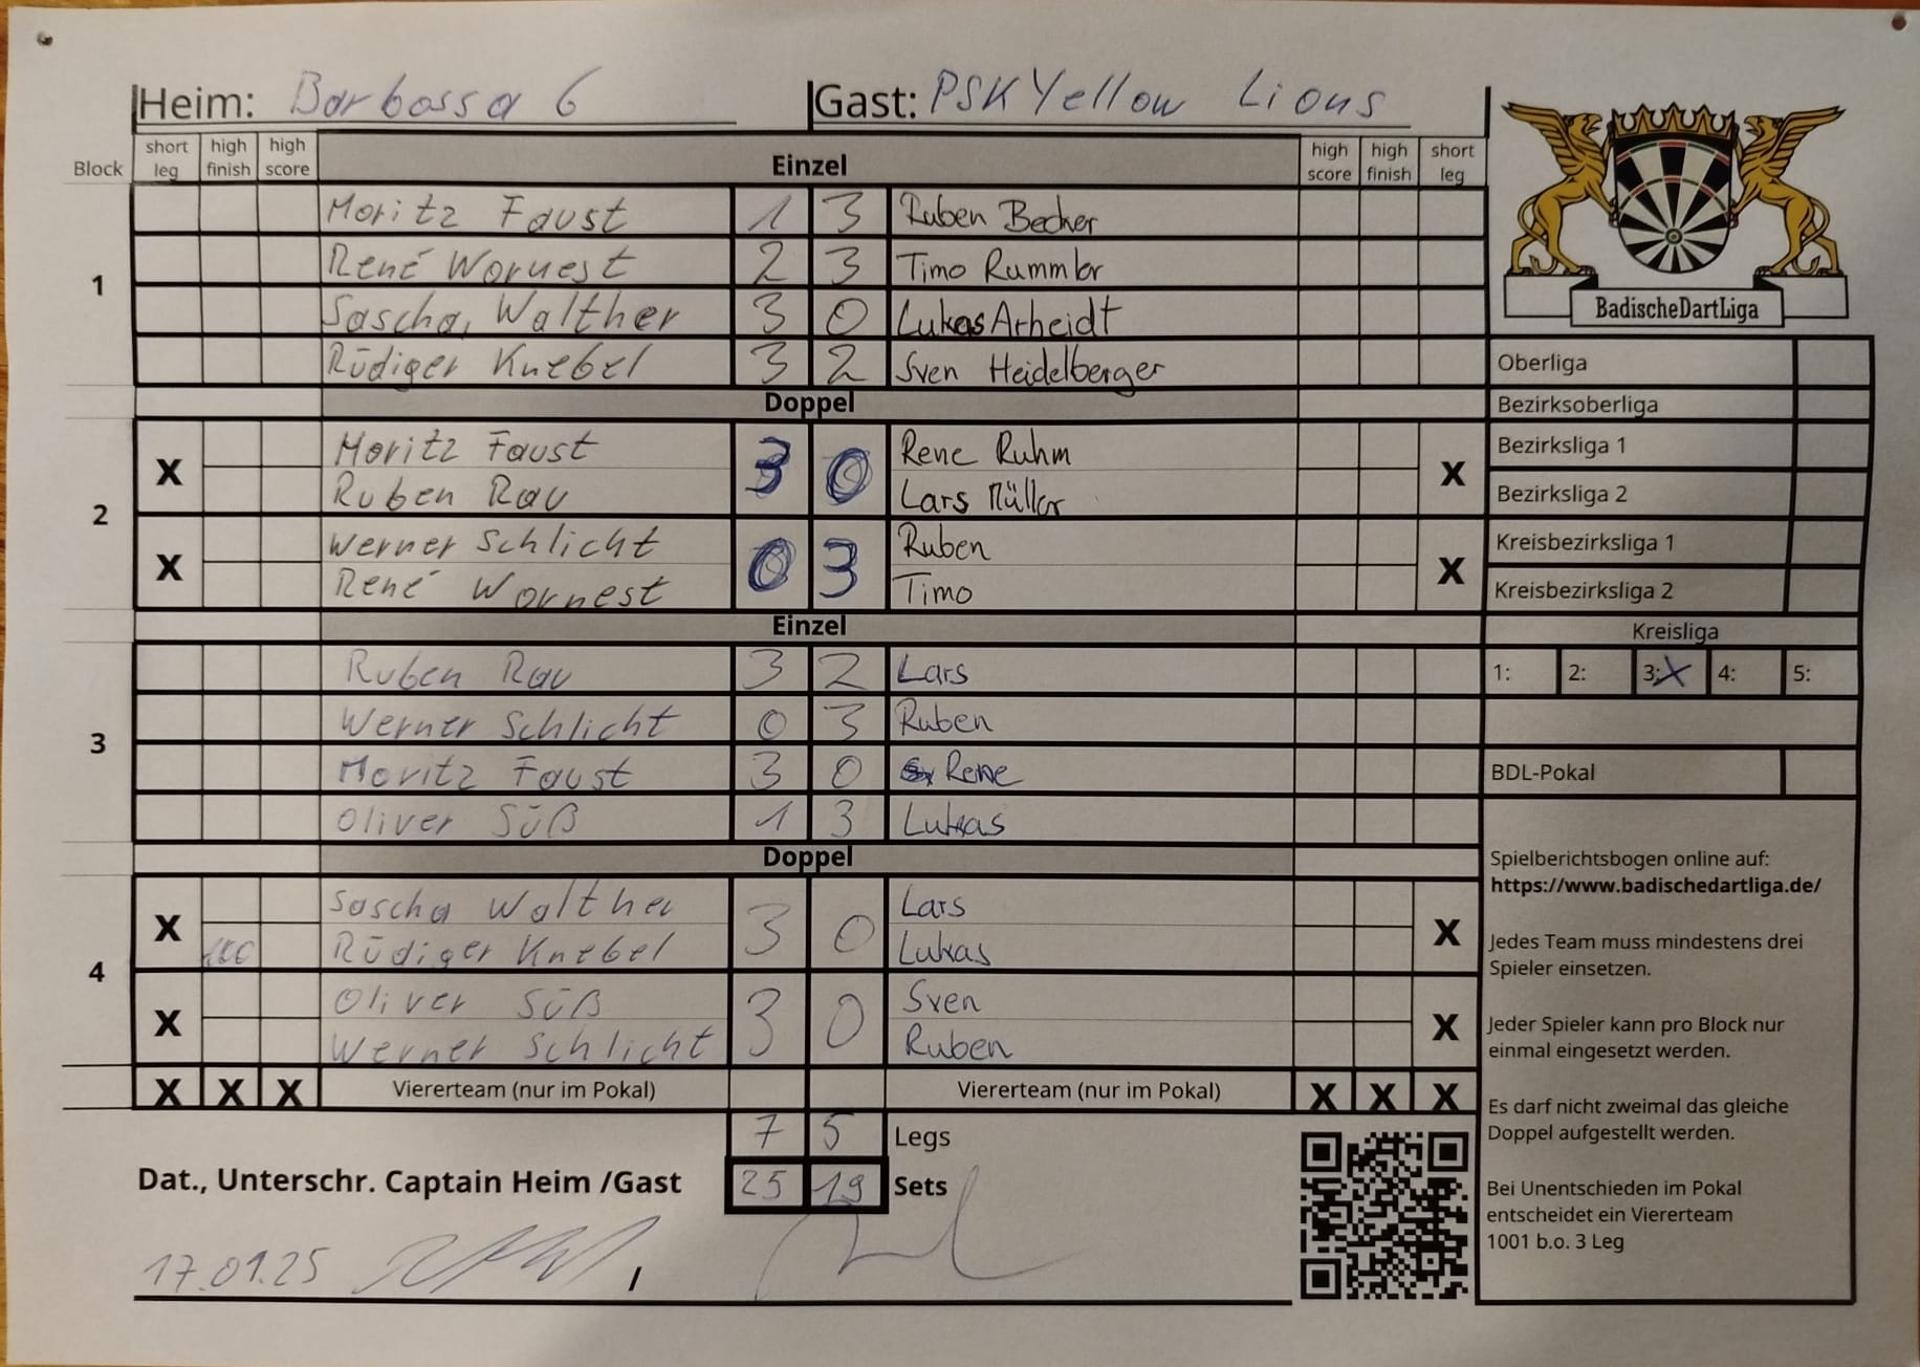 Heim: Barbossa 6 Gast: PSK Yellow Lions
Block short leg high finish high score Einzel high score high finish short leg
1
Moritz Faust 1 3 Ruben Becher
René Wornest 2 3 Timo Rummler
Sascha, Walther 3 0 Lukas Arheidt
Rüdiger Knebel 3 2 Sven Heidelberger
Doppel
2
X Moritz Faust 3 0 Rene Ruhm X
Ruben Rau Lars Müller
X Werner Schlicht 0 3 Ruben X
René Wornest Timo
Einzel
3
Ruben Rau 3 2 Lars
Werner Schlicht 0 3 Ruben
Moritz Faust 3 0 Rene
Oliver Süß 1 3 Lukas
Doppel
4
X Sascha Walther 3 0 Lars X
Rüdiger Knebel Lukas
X Oliver Süß 3 0 Sven X
Werner Schlicht Ruben
X X X Viererteam (nur im Pokal) Viererteam (nur im Pokal) X X X
7 5 Legs
Dat., Unterschr. Captain Heim /Gast 25 19 Sets
17.01.25 /
BadischeDartLiga
Oberliga
Bezirksoberliga
Bezirksliga 1
Bezirksliga 2
Kreisbezirksliga 1
Kreisbezirksliga 2
Kreisliga
1: 2: 3: X 4: 5:
BDL-Pokal
Spielberichtsbogen online auf:
https://www.badischedartliga.de/
Jedes Team muss mindestens drei
Spieler einsetzen.
Jeder Spieler kann pro Block nur
einmal eingesetzt werden.
Es darf nicht zweimal das gleiche
Doppel aufgestellt werden.
Bei Unentschieden im Pokal
entscheidet ein Viererteam
1001 b.o. 3 Leg